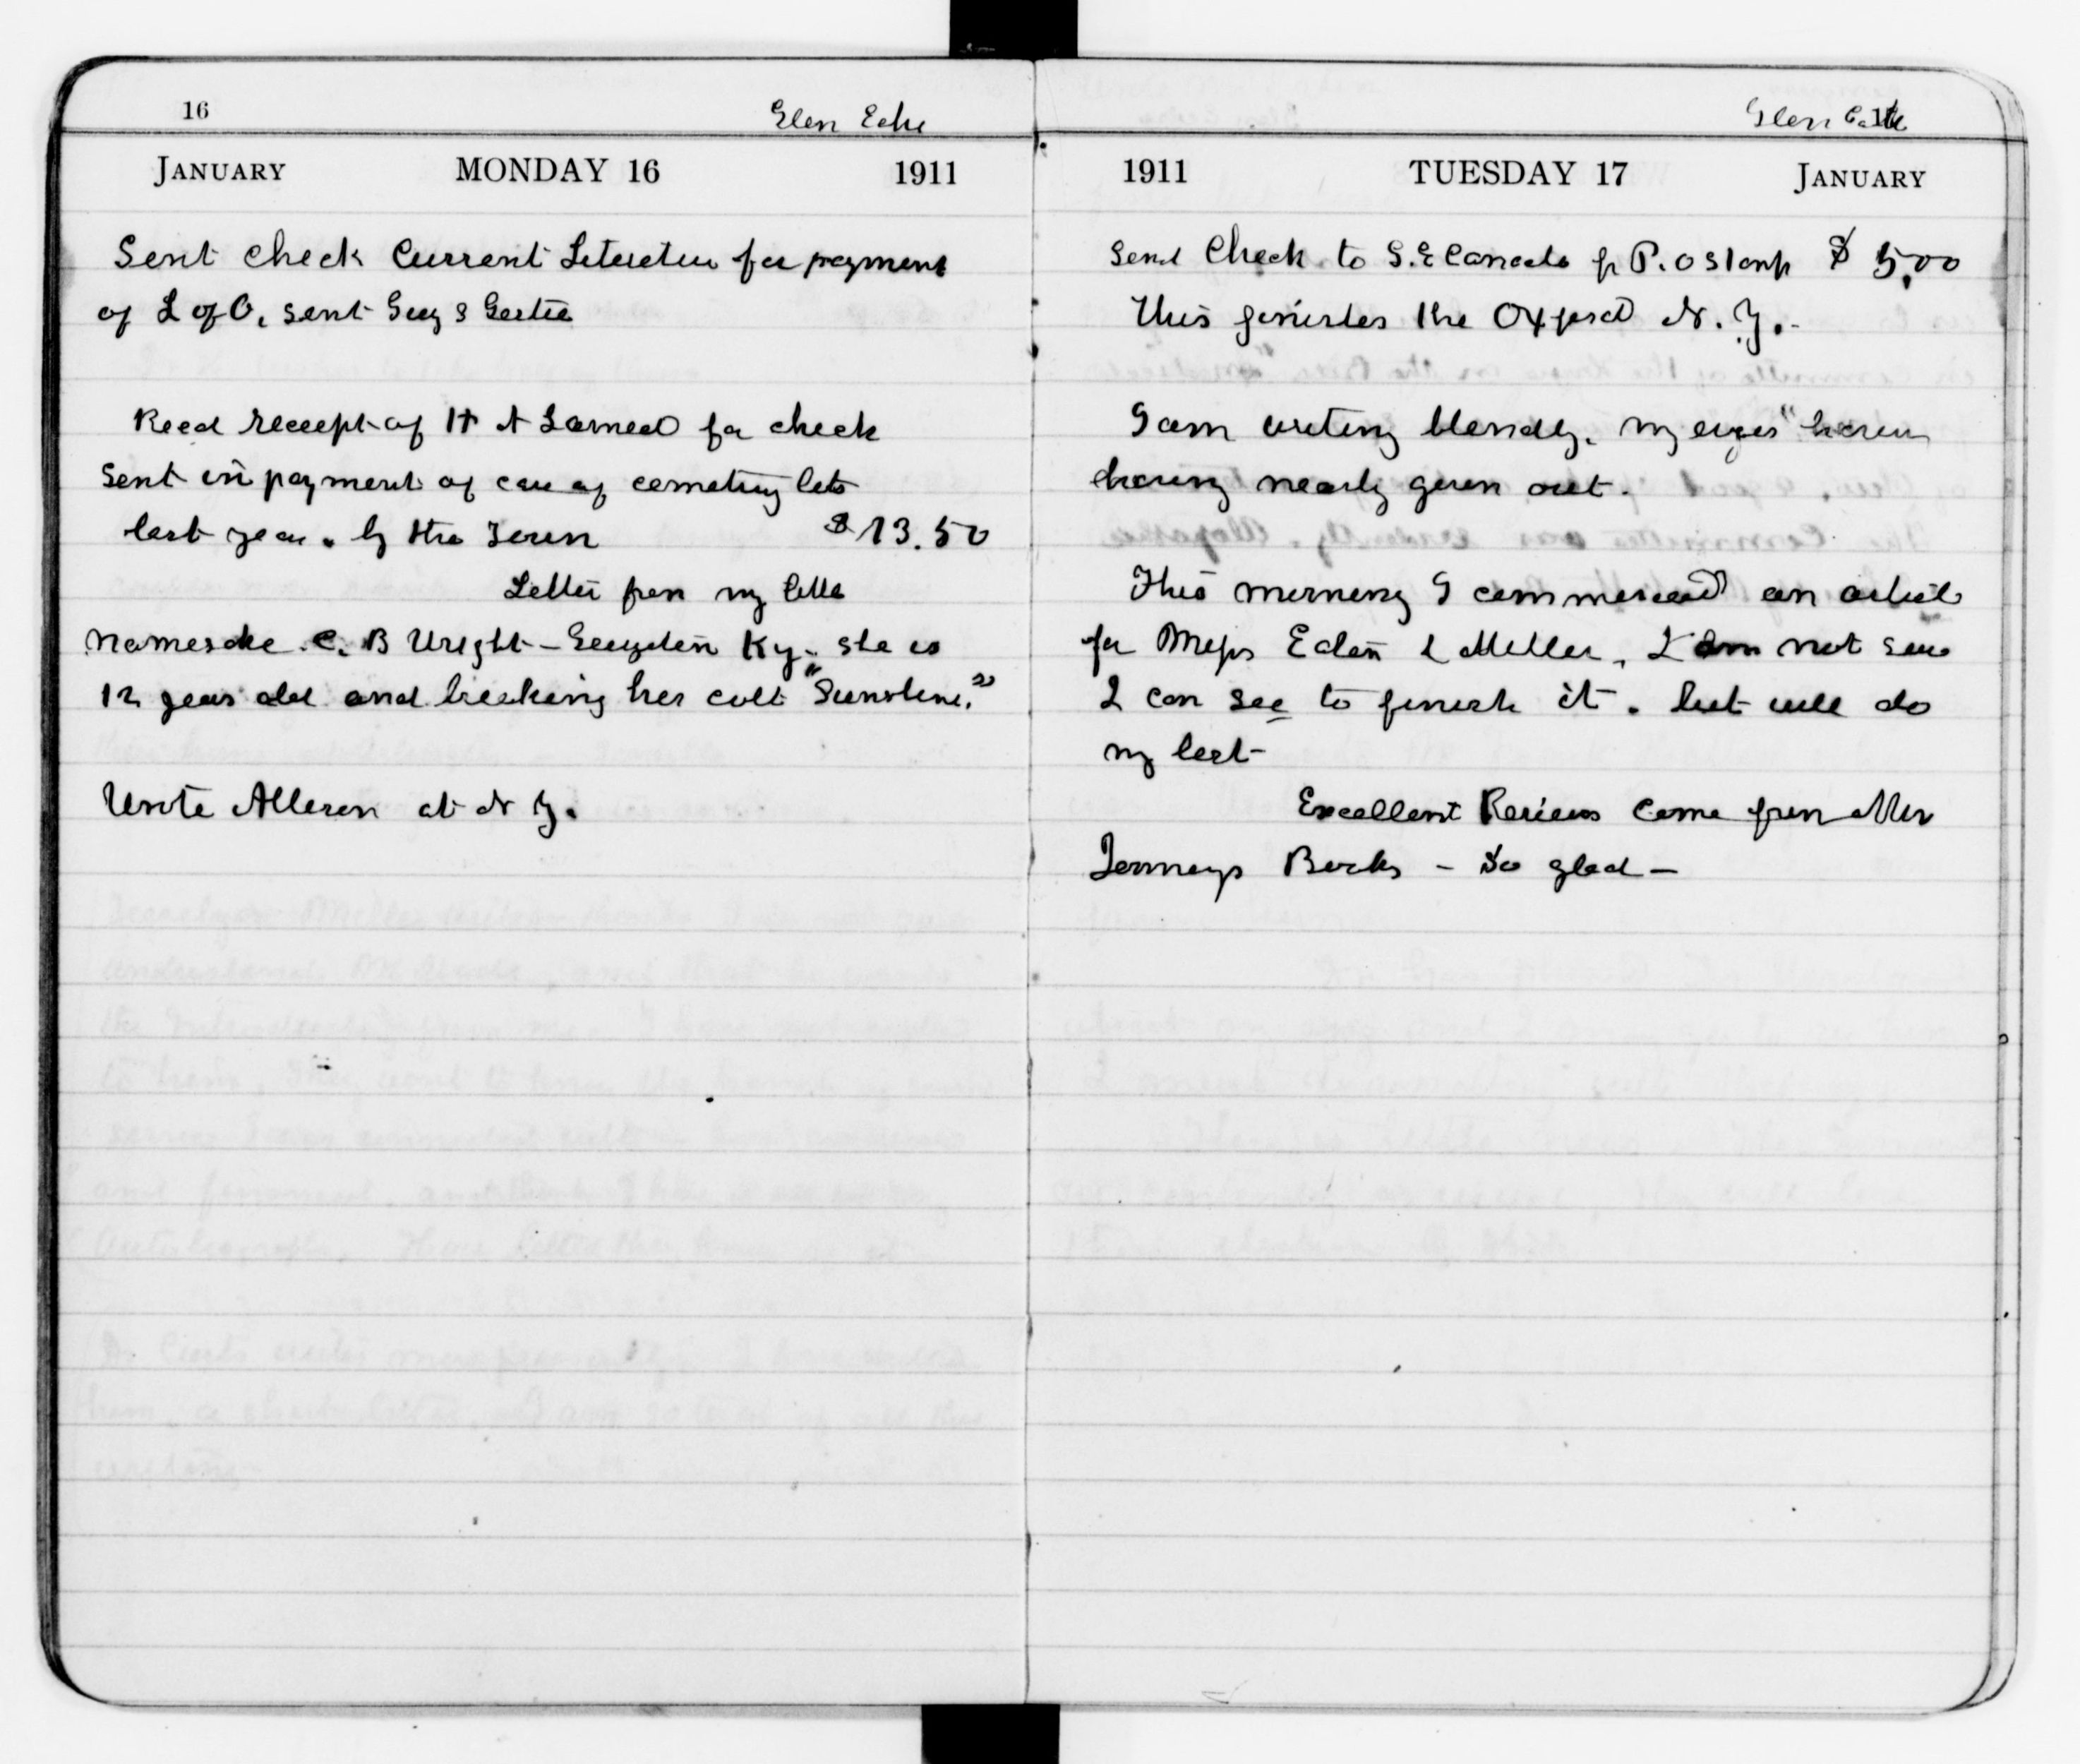 16 Glen Echo
JANUARY MONDAY 16 1911
Sent check Current Literature for payment
of L of O, sent Guy & Gertie
Recd receipt of H A Larned for check
sent in payment of care of cemetery lots
last year. by the Town $13.50
Letter from my little
namesake C. B Wright - Ky. she is
12 years old and breaking her colt "Sunshine."
Wrote Alleson at N Y.
Glen Echo
1911 TUESDAY 17 JANUARY
Send Check to S. E for P. O Stamp $ 5.00
This finishes the Oxford N. Y.
I am writing blindly. my eyes having nearly given out.
This morning I commenced an article
for Messrs Eaton & Miller, I am not sure
I can see to finish it. but will do
my best
Excellent Reviews come from Mrs
Books - So glad -